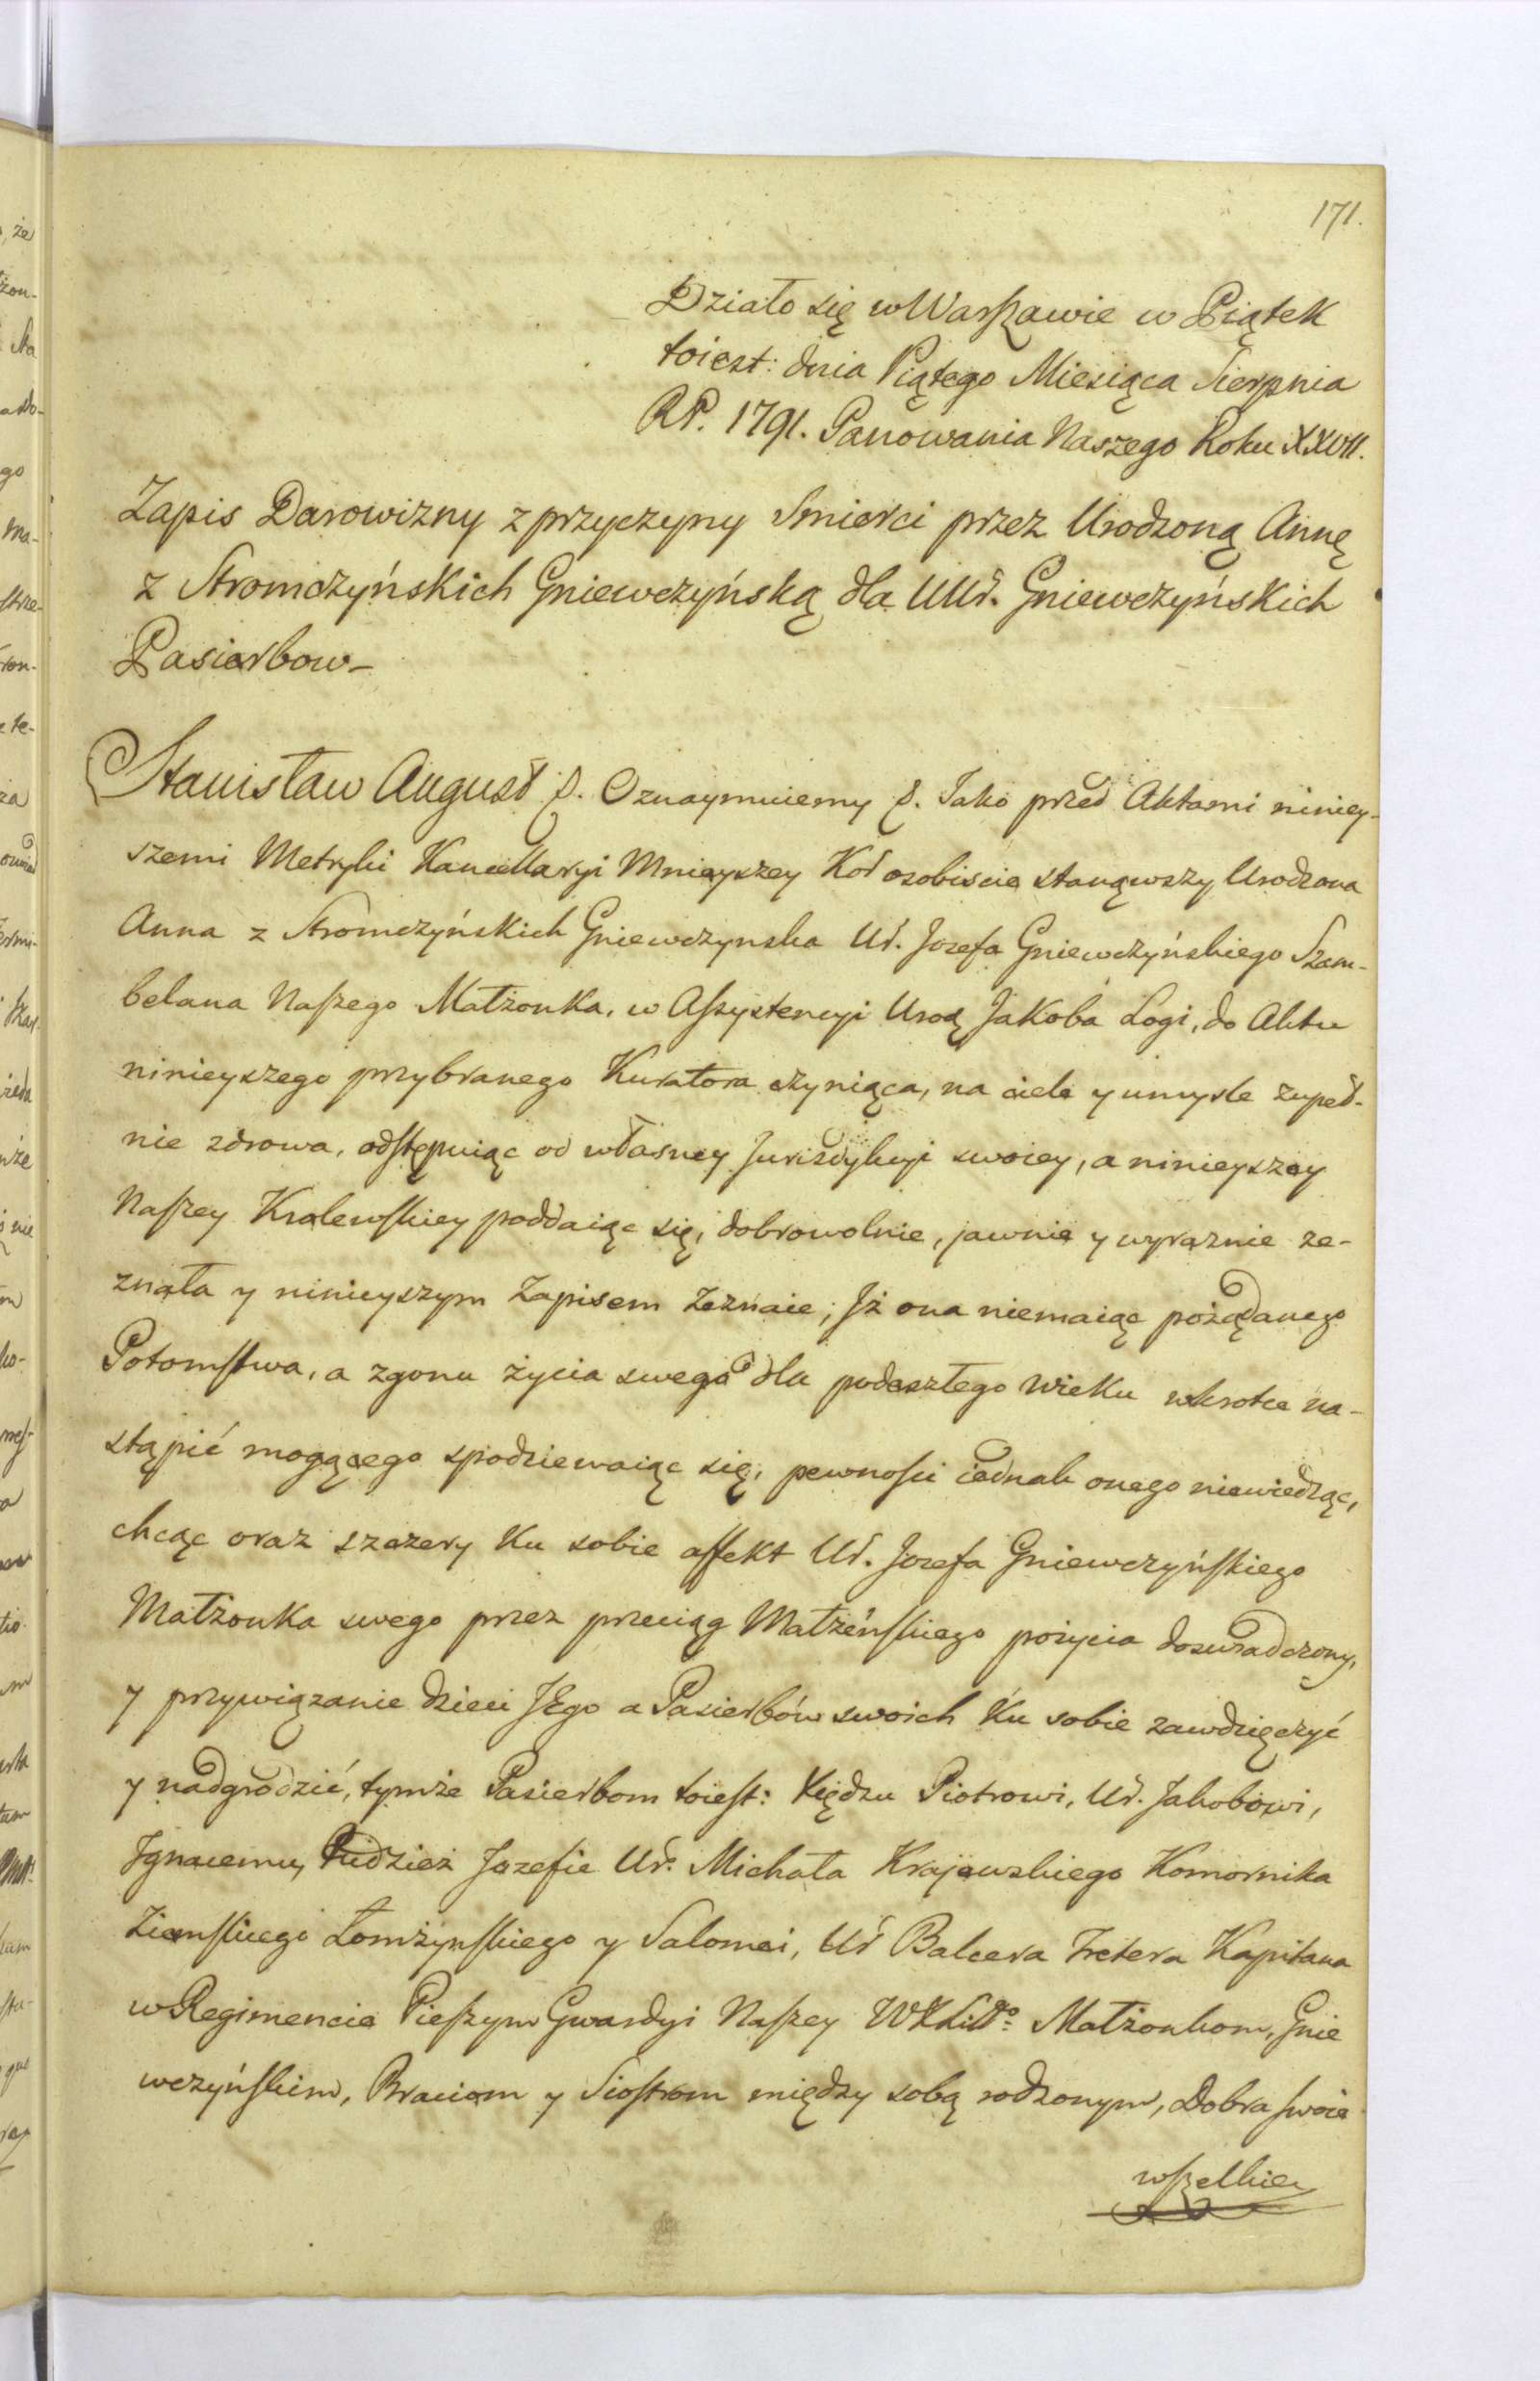 171.
Działo się w Warszawie w Piątek
toiest: dnia Piątego Miesiąca Sierpnia
RP. 1791. Panowania Naszego Roku XXVII.
Zapis Darowizny z przyczyny Smierci przez Urodzoną Annę
z Stromczyńskich Gniewczyńską dla UUr. Gniewczyńskich
Pasierbow_
Stanisław August &. Oznaymuiemy &. Jako przed Aktami niniey-
szemi Metryki Kancellaryi Mnieyszey Kor osobiscie stanąwszy Urodzona
Anna z Stromczyńskich Gniewczynska Ur. Jozefa Gniewczyńskiego Szam-
belana Naszego Małżonka, w Assystencyi Urod Jakoba Logi, do Aktu
ninieyszego przybranego Kuratora czyniąca, na ciele y umysle zupeł-
nie zdrowa, odstępuiąc od własney Jurisdykcyi swoiey, a ninieyszey
Naszey Krolewskiey poddaiąc się, dobrowolnie, jawnie y wyraznie ze-
znała y ninieyszym Zapisem Zeznaie; Jż ona niemaiąc pożądanego
Potomstwa, a zgonu życia swego dla podeszłego wieku wkrotce na-
stąpić mogącego spodziewaiąc się, pewności iednak onego niewiedząc,
chcąc oraz szczery Ku sobie affekt Ur. Jozefa Gniewczyńskiego
Małżonka swego przez przeciąg Małżeńskiego pożycia doswiadczony,
y przywiązanie dzieci JEgo a Pasierbów swoich Ku sobie zawdzięczyć
y nadgrodzić, tymże Pasierbom toiest: Xiędzu Piotrowi, Ur. Jakobowi,
Jgnacemu, tudzież Jozefie Ur. Michała Krajewskiego Komornika
Ziemskiego Łomżynskiego y Salomei, Ur Balcera Tretera Kapitana
w Regimencie Pieszym Gwardyi Naszey WXLitto: Małżonkom, Gnie
wczyńskim, Braciom y Siostrom między sobą rodzonym, Dobra swoie
wszelkie